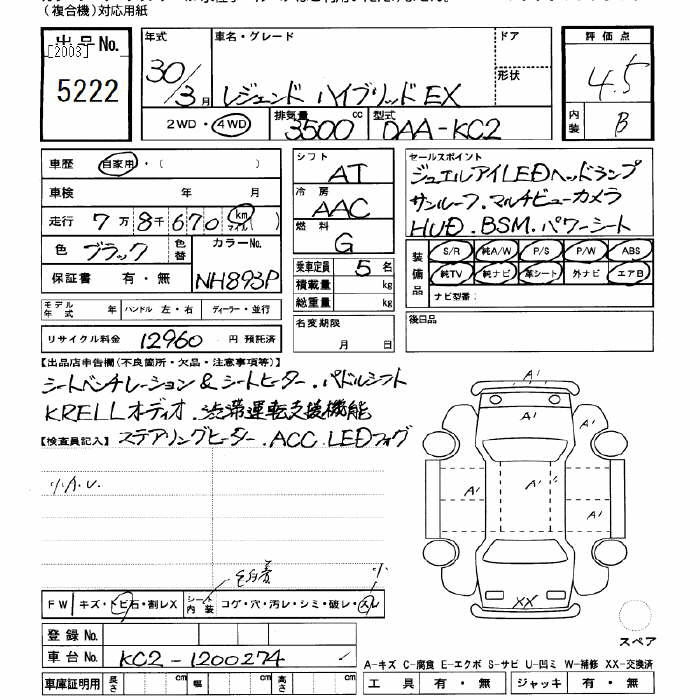 (複合機)対応用紙
出品No.
[2003]
5222
年式 30/3月
車名・グレード レジェンド ハイブリッドEX
ドア
形状
評価点 4.5
内装 B
2WD・4WD
排気量 3500 cc
型式 DAA-KC2
車歴 自家用・( )
車検 年 月
走行 7万8千670 km マイル( )
色 ブラック 色替
カラーNo. NH893P
保証書 有・無
モデル年式 年 ハンドル 左・右 ディーラー・並行
リサイクル料金 12960 円 預託済
シフト AT
冷房 AAC
燃料 G
乗車定員 5 名
積載量 kg
総重量 kg
名変期限 月 日
セールスポイント
ジュエルアイLEDヘッドランプ
サンルーフ.マルチビューカメラ
HUD.BSM.パワーシート
装備品 S/R 純A/W P/S P/W ABS
純TV 純ナビ 革シート 外ナビ エアB
ナビ型番:
後日品
【出品店申告欄(不良箇所・欠品・注意事項等)】
シートベンチレーション&シートヒーター.パドルシフト
KRELLオーディオ.渋滞運転支援機能
【検査員記入】 ステアリングヒーター.ACC.LEDフォグ
小A.U.
FW キズ・トビ石・割レX
シート内装 コゲ・穴・汚レ・シミ・破レ・スレ
小
登録No.
車台No. KC2-1200274
車庫証明用 長さ cm 幅 cm 高さ cm
A'
A'
A'
A'
A'
XX
スペア
A-キズ C-腐食 E-エクボ S-サビ U-凹ミ W-補修 XX-交換済
工具 有・無 ジャッキ 有・無